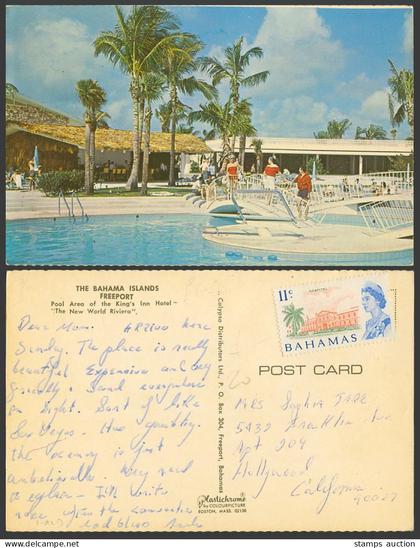 THE BAHAMA ISLANDS
FREEPORT
Pool Area of the King's Inn Hotel —
"The New World Riviera".
Dear Mom. ARRIVED here
Sunday. The place is really
beautiful Expensive and very
friendly. Sand everywhere
in sight. Sort of like
Las Vegas. Have gambling.
the scenery is just
unbelievable. Very hard
to explain - I'll write
more after the convention
God bless
Calypso Distributors Ltd., P. O. Box 304, Freeport, Bahamas
Plastichrome®
by COLOURPICTURE
BOSTON, MASS. 02130
11c
HOSPITAL
BAHAMAS
POST CARD
MRS Sophia
5432 Franklin Ave
Apt 204
Hollywood
California
90027
stamps.auction